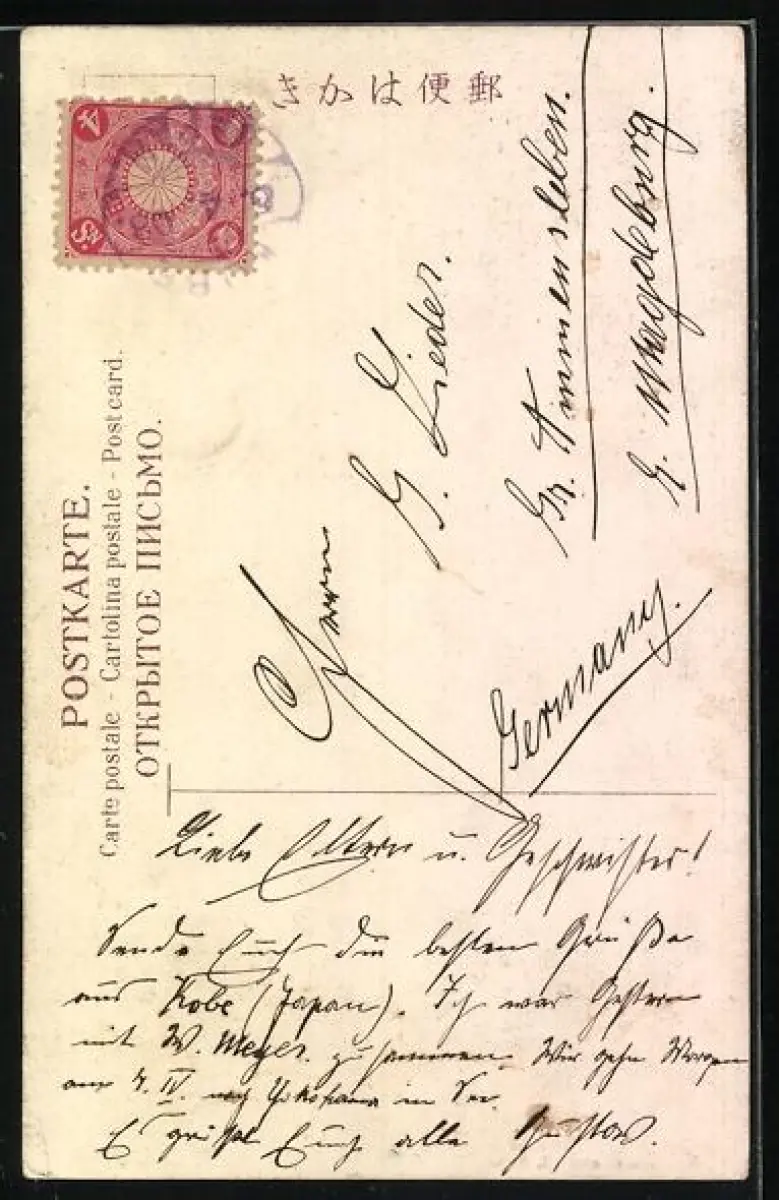 きかは便郵
POSTKARTE.
Carte postale - Cartolina postale - Postcard.
ОТКРЫТОЕ ПИСЬМО.
4
Sn
Herrn
G. Lieder.
Gr. Ammensleben.
b. Magdeburg.
Germany.
Liebe Eltern u. Geschwister!
Sende Euch die besten Grüße
aus Kobe (Japan). Ich war Gestern
mit W. Meyer. zusammen. Wir gehn Morgen
am 4. IV. nach Yokohama in See.
Es grüßt Euch alle Gustav.